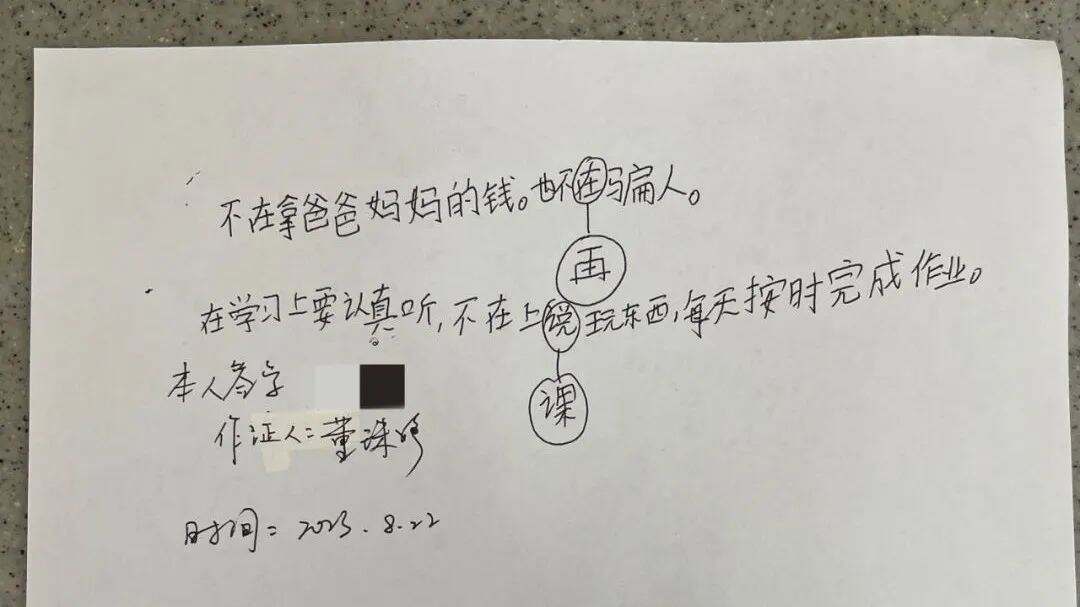 不在拿爸爸妈妈的钱。也不在骗人。
再
在学习上要认真听,不在上说玩东西,每天按时完成作业。
课
本人签字
作证人:董
时间:2023.8.22